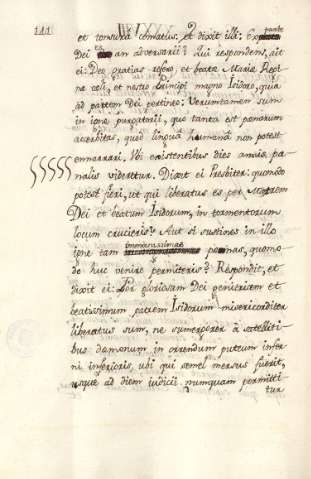 111
et tonsura comatus. et dixit illi: Ex parte
Dei es an adversarii? Qui respondens, ait
ei: Deo gratias refero, et beatæ Mariæ Regi
næ celi, et nostro Principi magno Isidoro, quia
ad partem Dei pertineo: Verumtamen sum
in igne purgatorii, qui tanta est poenarum
acerbitas, quod lingua humana non potest
ennarrari. Ibi existentibus dies annis pæ
nalis videretur. Dixit ei Presbiter: quomodo
potest fieri, ut qui liberatus es per Matrem
Dei et beatum Isidorum, in tormentorum
locum crucieris? Aut si sustines in illo
igne tam immanissimas poenas, quomo
do huc venire permiteris? Respondit, et
dixit ei: Per gloriosam Dei genitricem et
beatissimum patrem Isidorum misericorditer
liberatus sum, ne sumergerer à satelliti
bus dæmonum in orrendum puteum infer
ni inferioris, ubi qui semel mersus fuerit,
usque ad diem iudicii numquam permitti
tur